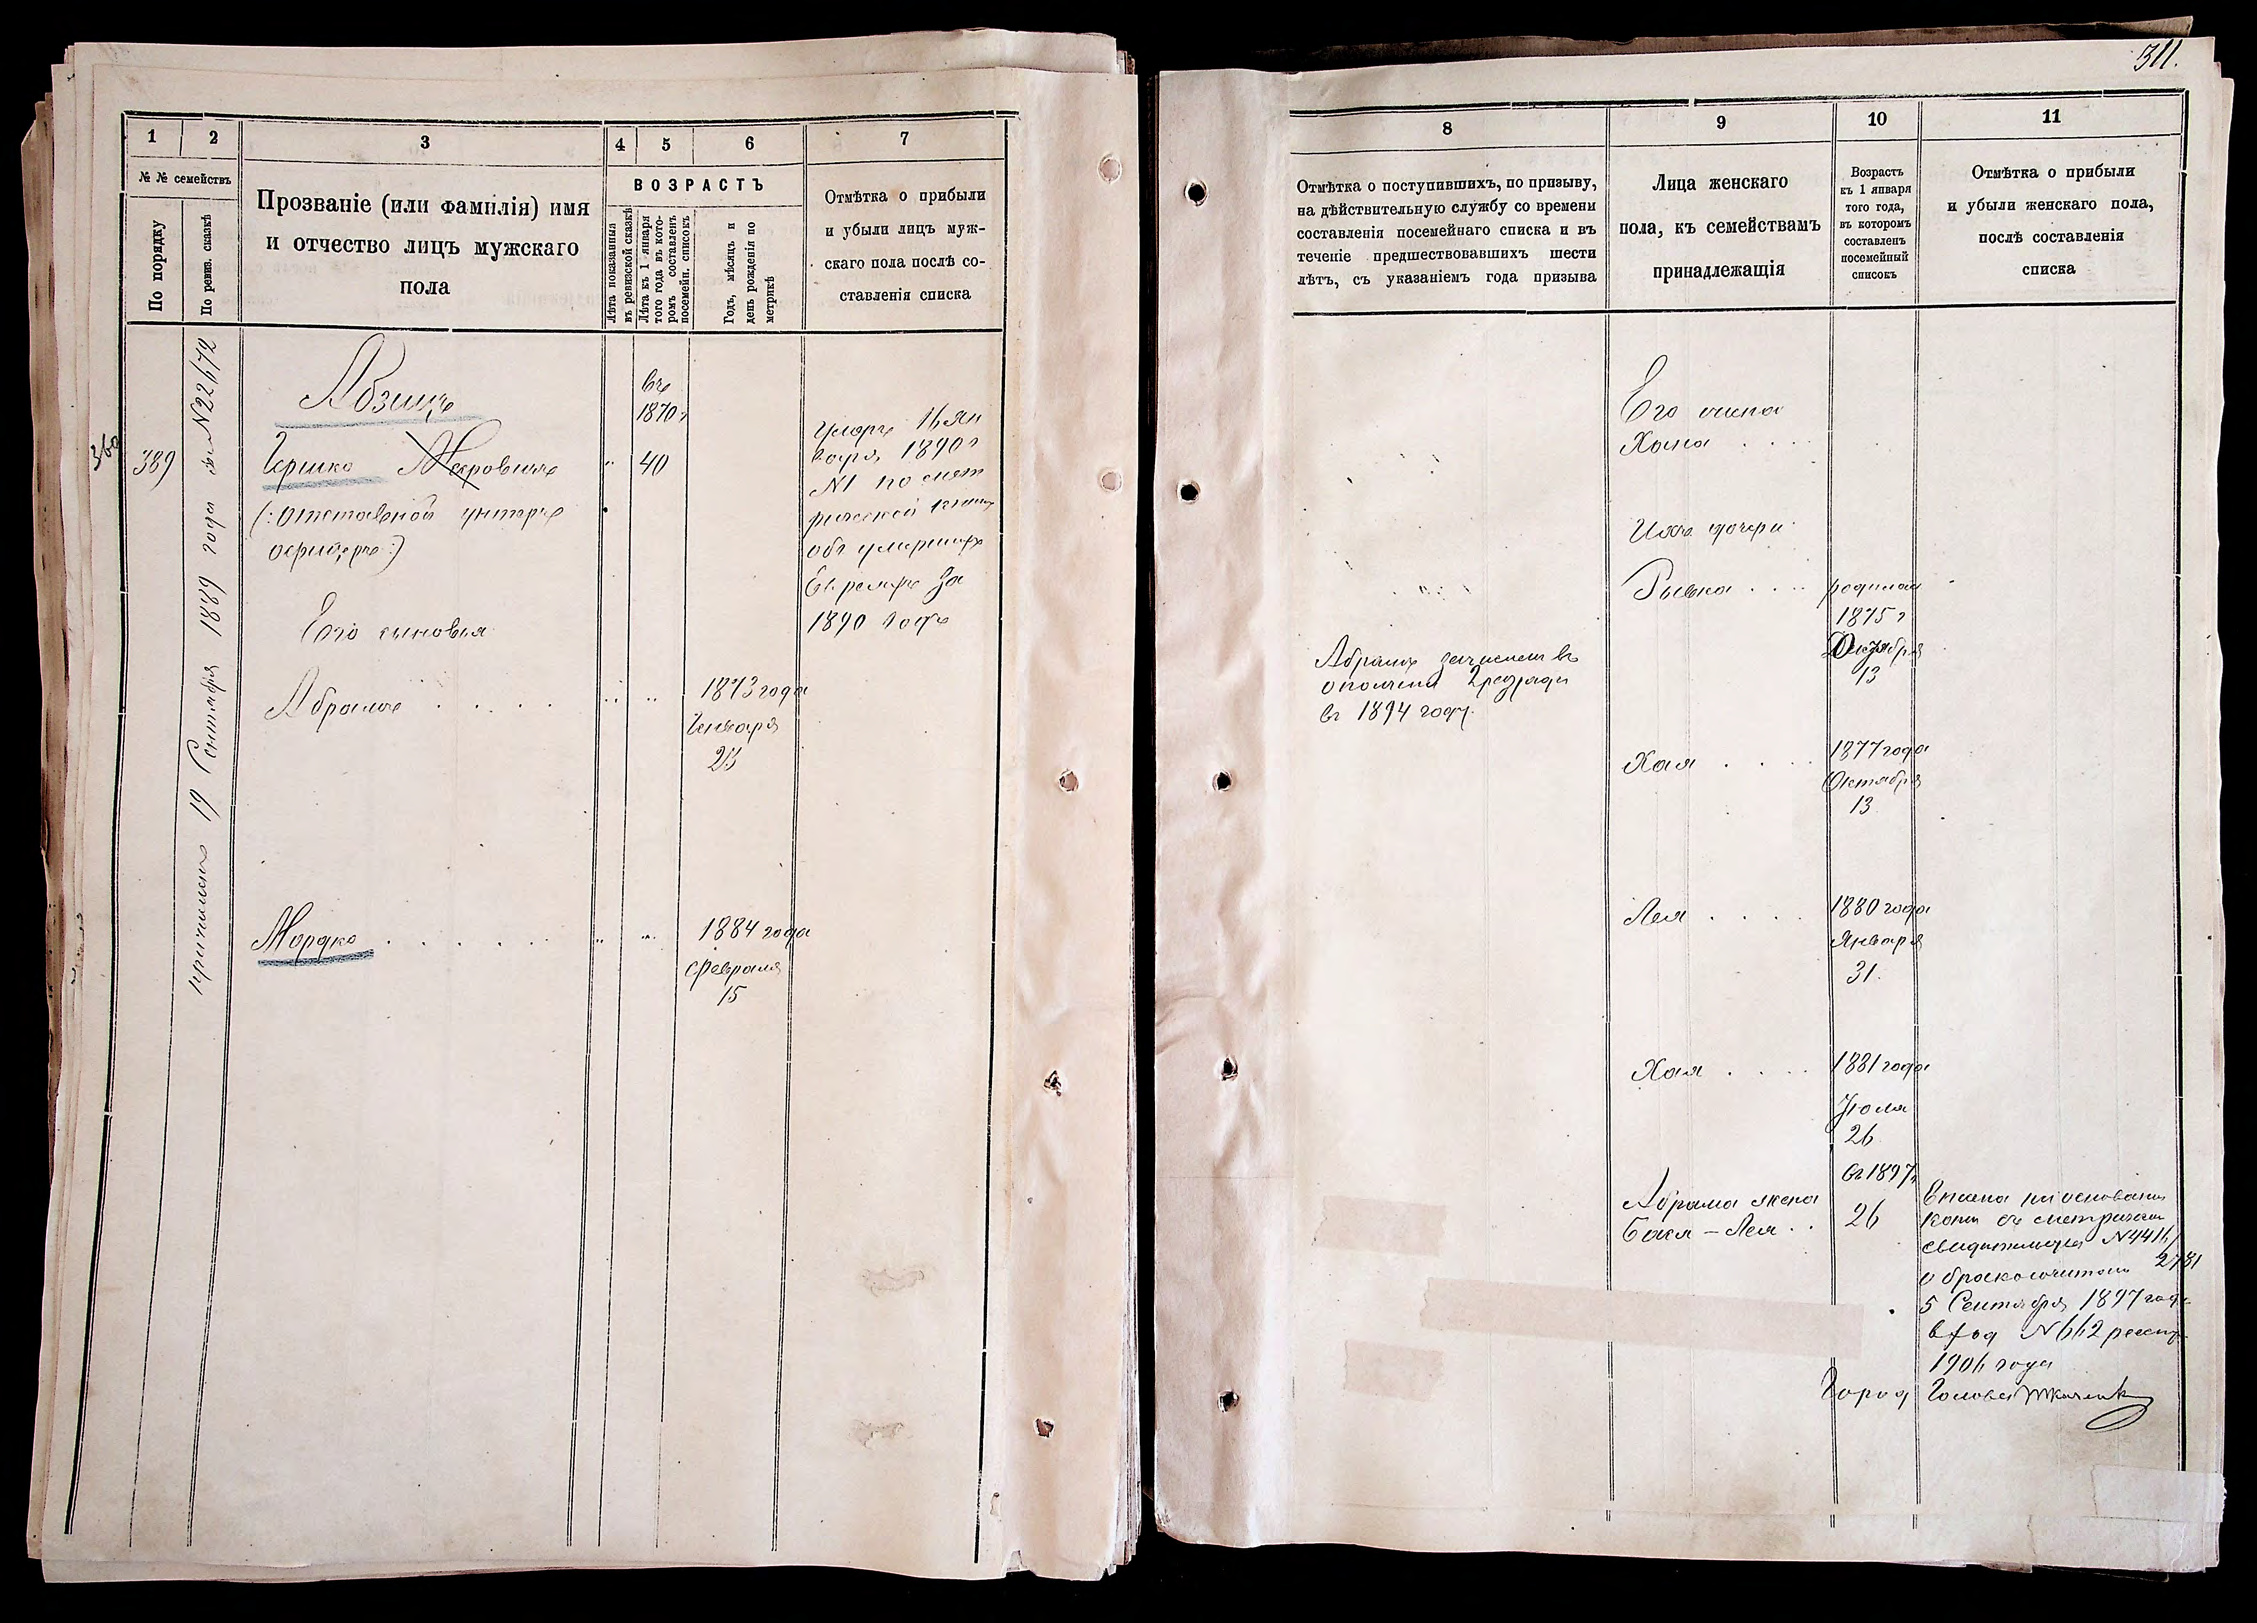 311.
1
2
3
4
5
6
7
№ № семействъ
По порядку
По ревиз. сказкѣ
Прозваніе (или фамилія) имя
и отчество лицъ мужскаго
пола
ВОЗРАСТЪ
Лѣта показанныя
въ ревизской сказкѣ
Лѣта къ 1 января
того года въ кото-
ромъ составленъ
посемейн. списокъ
Годъ, мѣсяцъ и
день рожденія по
метрикѣ
Отмѣтка о прибыли
и убыли лицъ муж-
скаго пола послѣ со-
ставленія списка
360
389
причислено 19 Сентября 1889 года за №22672
Абзицъ
Гершко Мееровичъ
(: отставной унтеръ
офицеръ :)
Его сыновья
Абрамъ
Мордко
въ
1870 г
40
1873 года
Января
23
1884 года
Февраля
15
Умеръ 16 Ян
варя 1890 г
№1 по мет
рической книг
объ умершихъ
Евреяхъ за
1890 годъ
8
9
10
11
Отмѣтка о поступившихъ, по призыву,
на дѣйствительную службу со времени
составленія посемейнаго списка и въ
теченіе предшествовавшихъ шести
лѣтъ, съ указаніемъ года призыва
Лица женскаго
пола, къ семействамъ
принадлежащія
Возрастъ
къ 1 января
того года,
въ которомъ
составленъ
посемейный
списокъ
Отмѣтка о прибыли
и убыли женскаго пола,
послѣ составленія
списка
Абрамъ зачислен въ
ополчение 2 разряда
въ 1894 году.
Его жена
Хана
Ихъ дочери
Рывка
родилась
1875 г
13
Хая
1877 года
Октября
13
Лея
1880 года
Января
31.
Хая
1881 года
Іюля
26
Абрама жена
Бася - Лея
въ 1897 г
26
Вписана на основании
копіи съ метрическ
свидѣтельства №4416/
2781
о бракосочетании
5 Сентября 1897 года
вход №662 реестр
1906 года
Город Голова Ткаченк